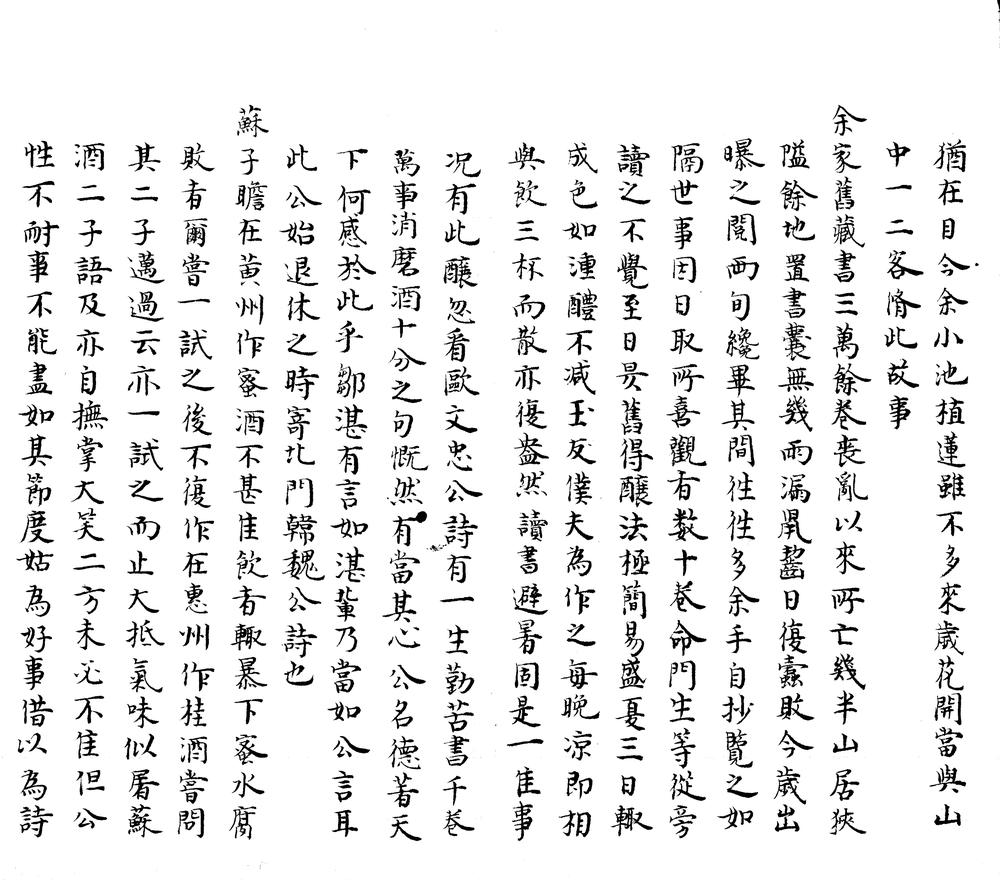 猶在目今余小池植蓮雖不多來歲花開當與山
中一二客脩此故事
余家舊藏書三萬餘卷丧亂以來所亡幾半山居狹
隘餘地置書囊無幾雨漏鼠齧日復蠹敗今歲出
曝之閱兩旬纔畢其間徃徃多余手自抄覽之如
隔世事因日取所喜觀有数十卷命門生等從旁
讀之不覺至日昃舊得釀法極簡易盛夏三日輙
成色如湩醴不减玉友僕夫為作之每晚凉即相
與飲三杯而散亦復盎然讀書避暑固是一佳事
况有此釀忽看歐文忠公詩有一生勤苦書千卷
萬事消磨酒十分之句慨然有當其心公名德著天
下何感於此乎鄒湛有言如湛輩乃當如公言耳
此公始退休之時寄北門韓魏公詩也
蘇子瞻在黄州作蜜酒不甚佳飲者輙暴下蜜水腐
敗者爾嘗一試之後不復作在惠州作桂酒嘗問
其二子邁過云亦一試之而止大抵氣味似屠蘇
酒二子語及亦自撫掌大笑二方未必不佳但公
性不耐事不能盡如其節度姑為好事借以為詩